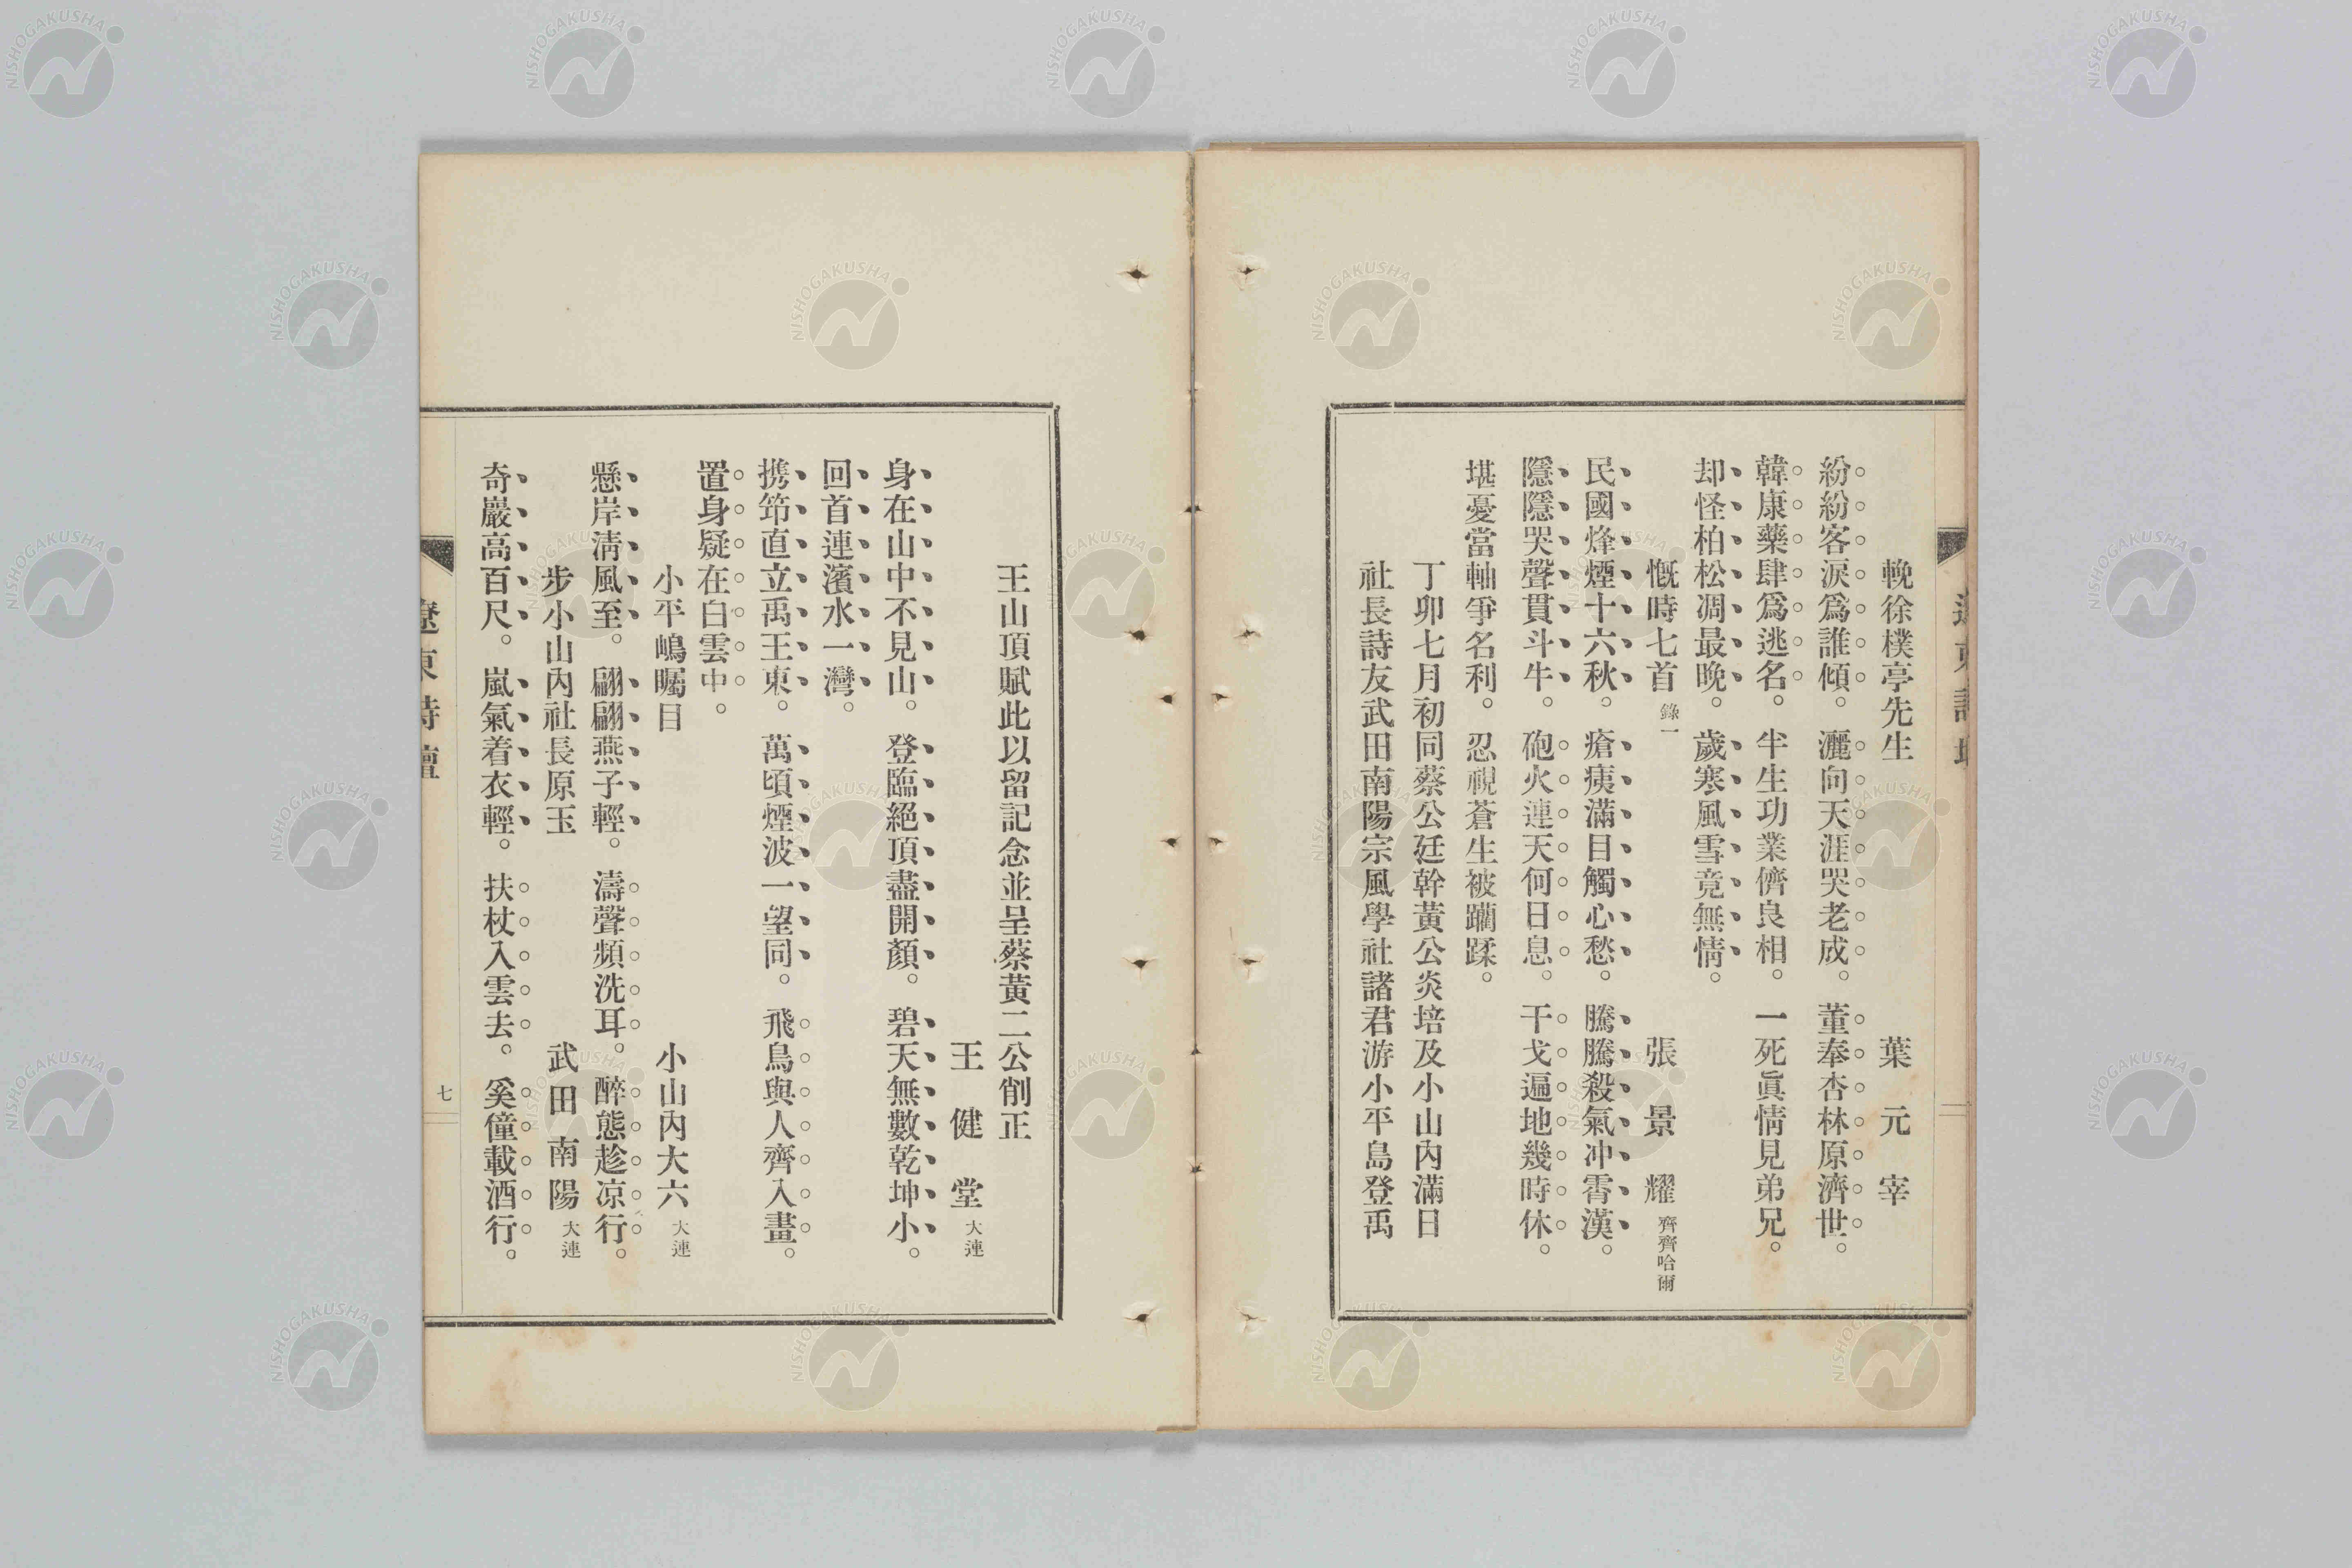 輓徐樸亭先生　葉元宰
紛紛客淚爲誰傾。灑向天涯哭老成。董奉杏林原濟世。
韓康藥肆爲逃名。半生功業儕良相。一死眞情見弟兄。
却怪柏松凋最晚。歲寒風雪竟無情。
慨時七首 錄一　張景耀 齊齊哈爾
民國烽煙十六秋。瘡痍滿目觸心愁。騰騰殺氣冲霄漢。
隱隱哭聲貫斗牛。砲火連天何日息。干戈遍地幾時休。
堪憂當軸爭名利。忍視蒼生被躪蹂。
丁卯七月初同蔡公廷幹黃公炎培及小山內滿日
社長詩友武田南陽宗風學社諸君游小平島登禹
王山頂賦此以留記念並呈蔡黃二公削正
王健堂 大連
身在山中不見山。登臨絕頂盡開顏。碧天無數乾坤小。
回首連濱水一灣。
携筇直立禹王東。萬頃煙波一望同。飛鳥與人齊入畫。
置身疑在白雲中。
小平嶋矚目　小山內大六 大連
懸岸淸風至。翩翩燕子輕。濤聲頻洗耳。醉態趁凉行。
步小山內社長原玉　武田南陽 大連
奇巖高百尺。嵐氣着衣輕。扶杖入雲去。奚僮載酒行。
遼東詩壇
七
NISHOGAKUSHA